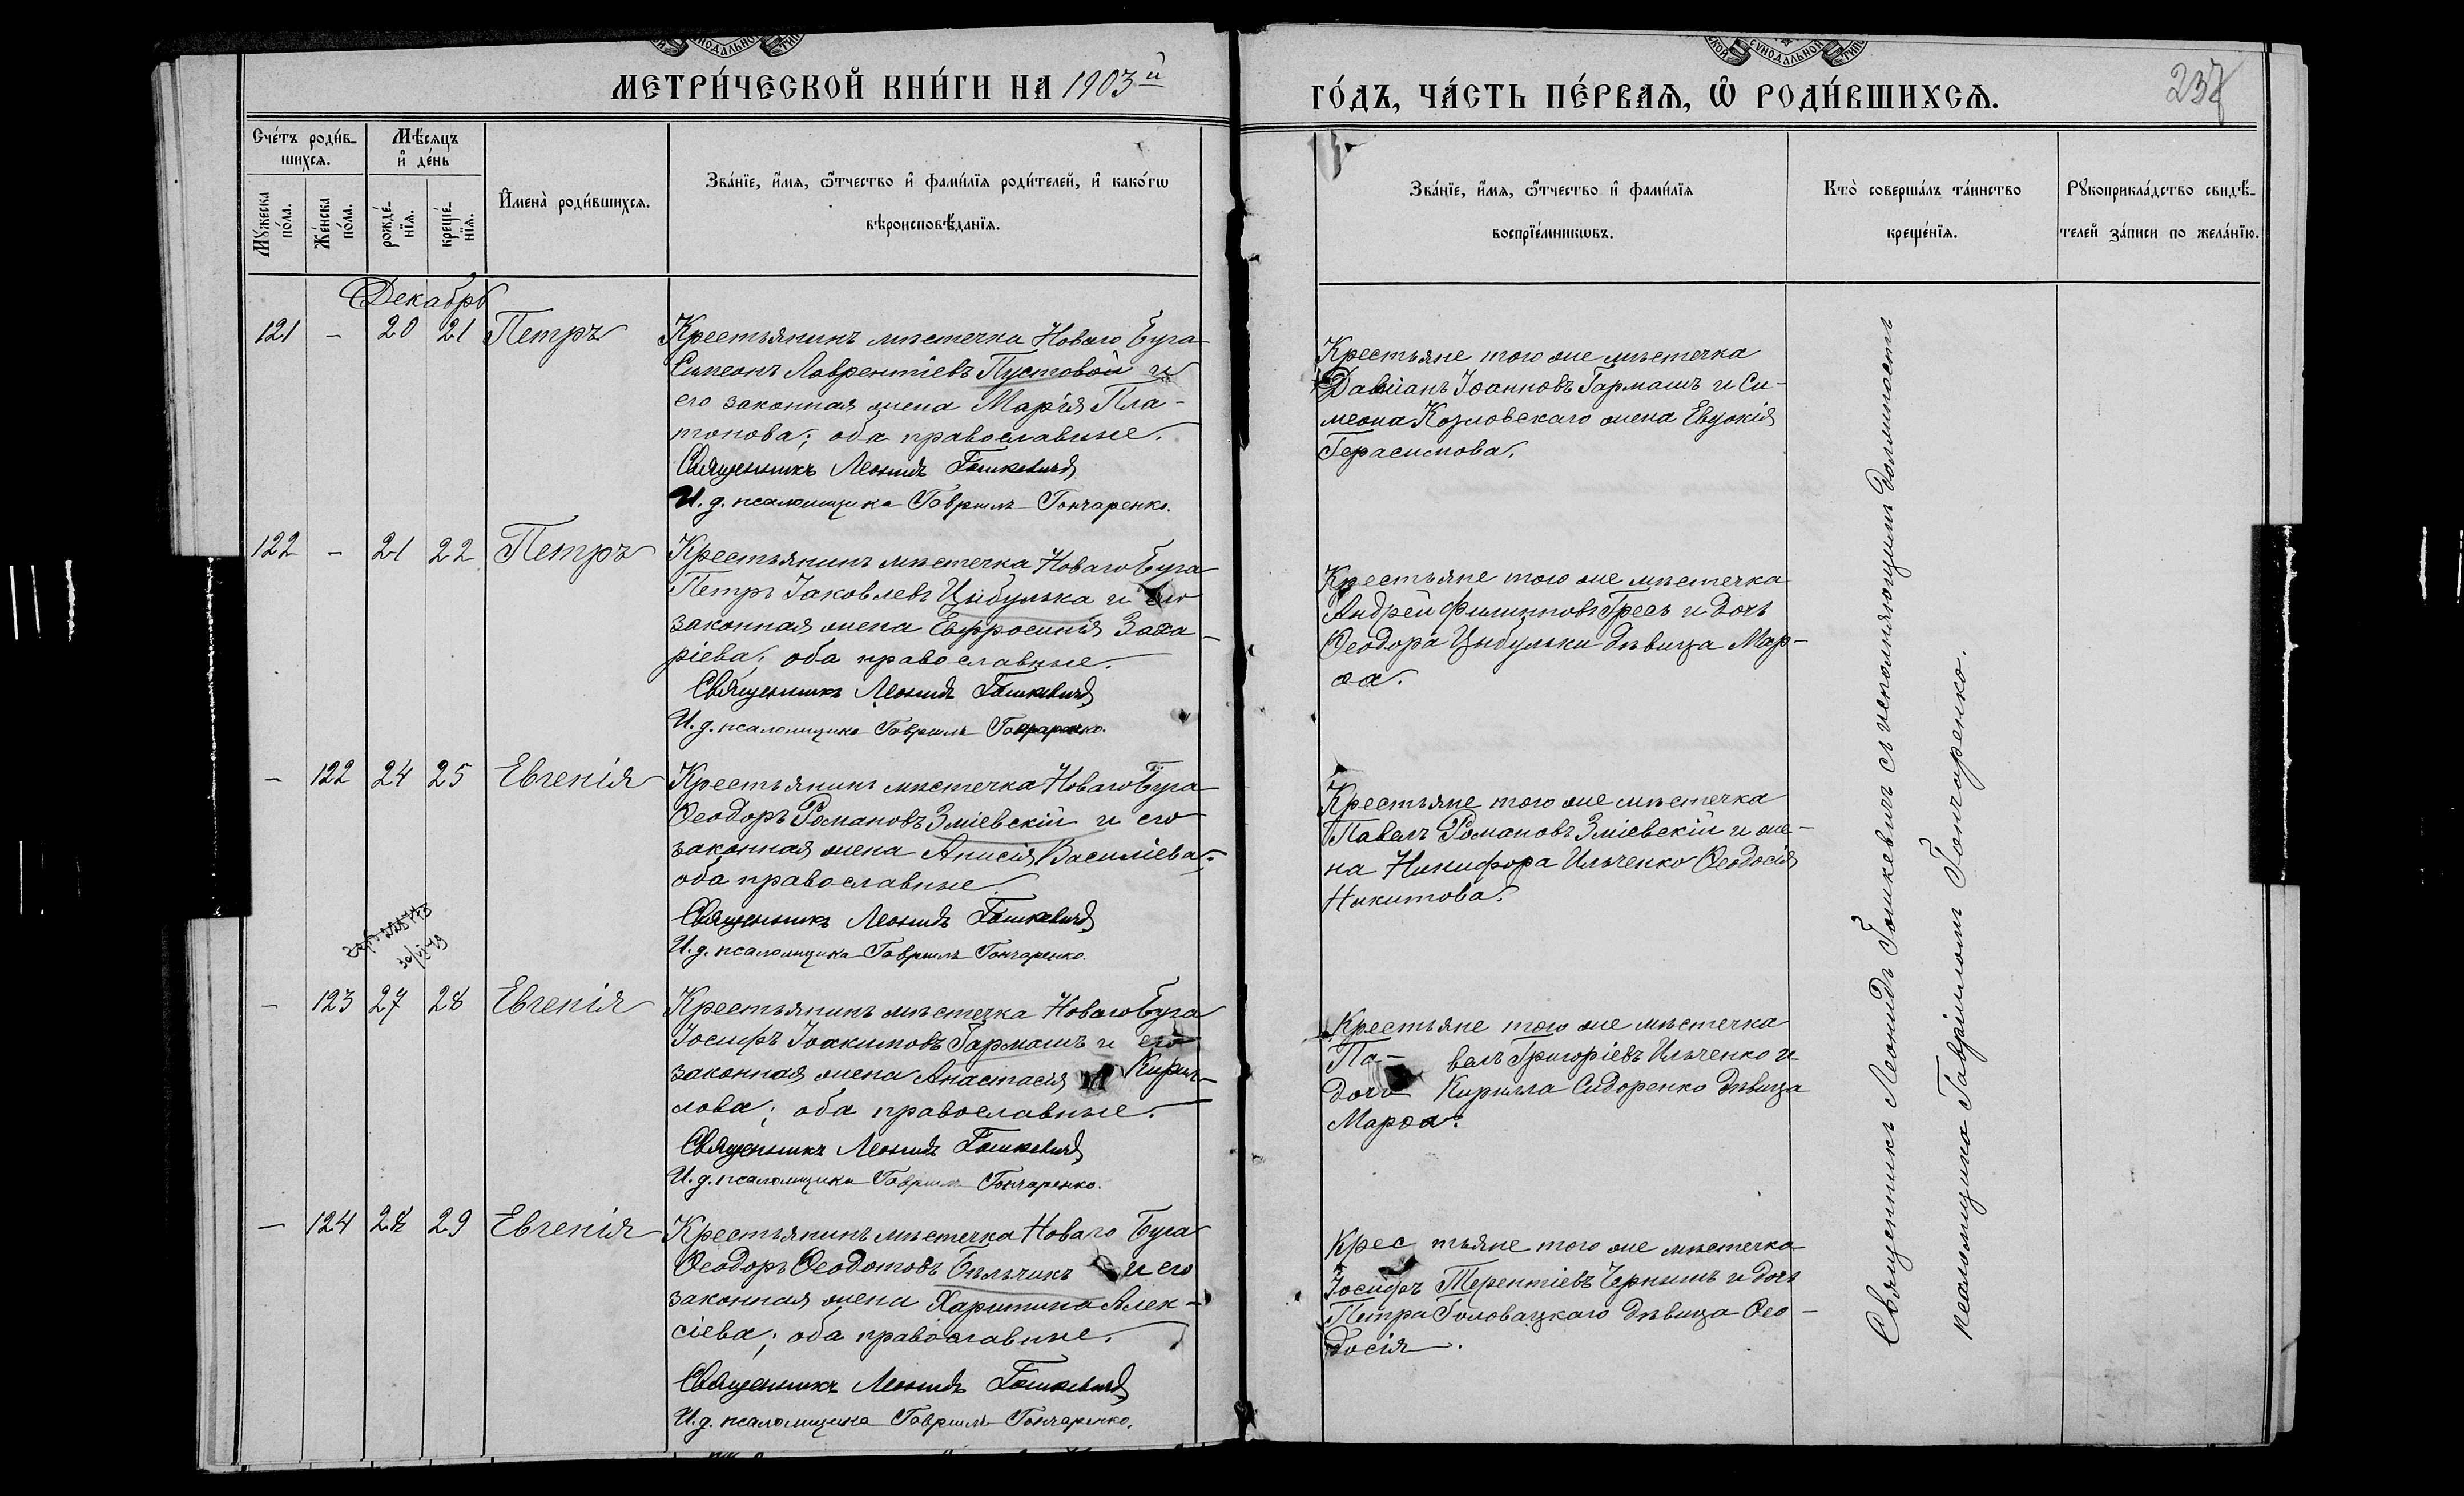 МЕТРИ́ЧЕСКОЙ КНИ́ГИ НА 1903й
ГО́ДЪ, ЧА́СТЬ ПЕ́РВАѦ, Ѡ РОДИ́ВШИХСѦ.
237
Сче́тъ роди́в-
шихсѧ.
Мѣсѧцъ
и де́нь
Мꙋжеска
по́ла.
Же́нска
по́ла.
рожде́-
нїѧ.
креще́-
нїѧ.
Имена̀ роди́вшихсѧ.
Зва́нїе, и́мѧ, ѻ҆́тчество и фами́лїѧ роди́телей, и како́гѡ
вѣроисповѣ́данїѧ.
Зва́нїе, и́мѧ, ѻ҆́тчество и фами́лїѧ
воспрїе́мникѡвъ.
Кто̀ соверша́лъ та́инство
креще́нїѧ.
Рꙋкоприкла́дство свидѣ́-
телей за́писи по жела́нїю.
Декабрь
121 - 20 21 Петръ
Крестьянинъ мѣстечка Новаго Буга
Симеонъ Лаврентіевъ Пустовой и
его законная жена Марія Пла-
тонова; оба православные.
Священникъ Леонидъ Гошкевичъ
И. д. псаломщика Гавриилъ Гончаренко.
Крестьяне того же мѣстечка
Даміанъ Іоанновъ Гармашъ и Си-
меона Козловскаго жена Евдокія
Герасимова.
122 - 21 22 Петръ
Крестьянинъ мѣстечка Новаго Буга
Петръ Іаковлевъ Цыбулька и его
законная жена Евфросинія Заха-
ріева; оба православные.
Священникъ Леонидъ Гошкевичъ
И. д. псаломщика Гавриилъ Гончаренко.
Крестьяне того же мѣстечка
Андрей Филипповъ Гресь и дочь
Ѳеодора Цыбульки дѣвица Мар-
ѳа.
- 122 24 25 Евгенія
Крестьянинъ мѣстечка Новаго Буга
Ѳеодоръ Романовъ Зміевскій и его
законная жена Анисія Василіева;
оба православные.
Священникъ Леонидъ Гошкевичъ
И. д. псаломщика Гавриилъ Гончаренко.
Крестьяне того же мѣстечка
Павелъ Романовъ Зміевскій и же-
на Никифора Ильченко Ѳеодосія
Никитова.
- 123 27 28 Евгенія
Крестьянинъ мѣстечка Новаго Буга
Іосифъ Іоакимовъ Гармашъ и его
законная жена Анастасія Кирил-
лова; оба православные.
Священникъ Леонидъ Гошкевичъ
И. д. псаломщика Гавриилъ Гончаренко.
Крестьяне того же мѣстечка
Па- велъ Григоріевъ Ильченко и
дочь Кирилла Сидоренко дѣвица
Марѳа.
- 124 28 29 Евгенія
Крестьянинъ мѣстечка Новаго Буга
Ѳеодоръ Ѳеодотовъ Бѣльчикъ и его
законная жена Харитина Алек-
сіева; оба православные.
Священникъ Леонидъ Гошкевичъ
И. д. псаломщика Гавриилъ Гончаренко.
Крес тьяне того же мѣстечка
Іосифъ Терентіевъ Чернышъ и дочь
Петра Головацкаго дѣвица Ѳео-
досія.
Священникъ Леонидъ Гошкевичъ съ исполняющимъ должность
псаломщика Гавріиломъ Гончаренко.